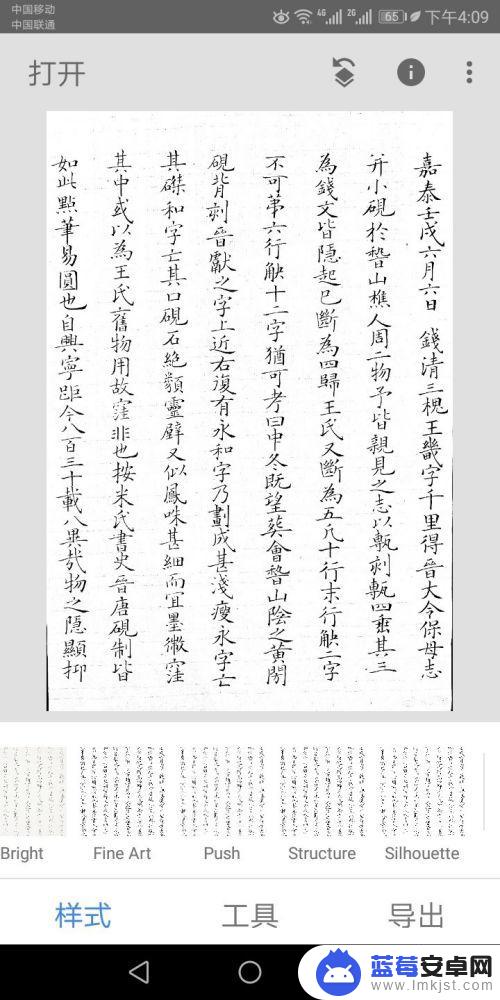 中国移动
中国联通
4G
2G
65
下午4:09
打开
嘉泰壬戌六月六日 錢清三槐王畿字千里得晉大令保母志
并小硯於稽山樵人周二物予皆親見之志以甎刻甎四垂其三
為錢文皆隱起已斷為四歸王氏又斷為五凡十行末行缺二字
不可第六行缺十二字猶可考曰中冬既望葬會稽山陰之黃閍
硯背刻晉獻之字上近右復有永和字乃劃成甚淺瘦永字亡
其磔和字亡其口硯石絶類靈壁又似鳳咮甚細而宜墨微窪
其中或以為王氏舊物用故窪非也按米氏書史晉唐硯制皆
如此點筆易圓也自興寧距今八百三十載八異哉物之隱顯抑
Bright
Fine Art
Push
Structure
Silhouette
样式
工具
导出
蓝莓安卓网
www.lmkjst.com